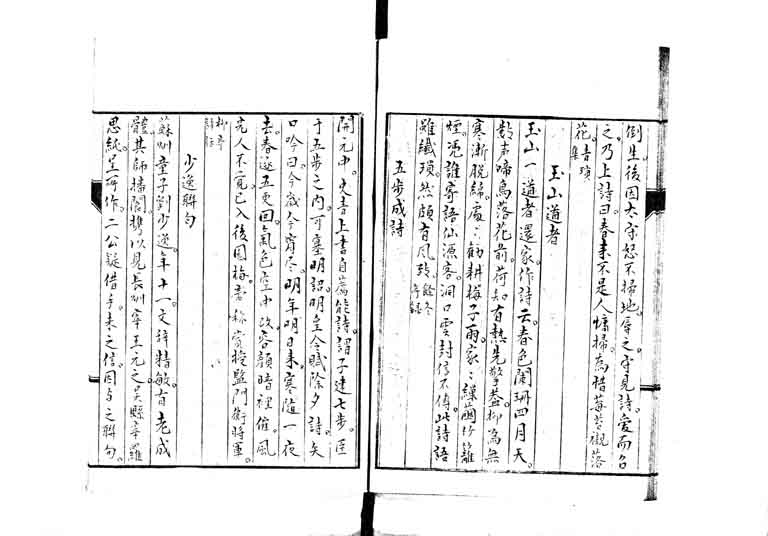 倒生後因太守恕不掃地。辱之。守見詩。愛而召
之。乃上詩曰。春來不是人慵掃。為惜莓苔襯落
花。青瑣集
玉山道者
玉山一道者還家。作詩云。春色闌珊四月天。
數声啼鳥落花前。荷知有熱先擎蓋。柳為無
寒漸脫綿。處處勸耕梅子雨。家家繰繭竹籬
煙。凭誰寄語仙源客。洞口雲封信不傳。此詩語
雖纖瑣。然頗有風致。餘冬序錄
五步成詩
開元中。史青上書自薦能詩。謂子建七步。臣
于五步之内。可塞明詔。明皇令賦除夕詩。矢
口吟曰。今歲今宵尽。明年明日来。寒随一夜
去。春逐五更回。氣色空中改。容顏暗裡催。風
光人不覚。已入後園梅。帝称賞。授監門衛將軍。
柳亭詩話
少逸聯句
蘇州童子劉少逸。年十一。文辞精敏。有老成
體。其師潘閬携以見長洲宰王元之。吳縣宰羅
思純。呈所作。二公疑借手。未之信。因与之聯句。